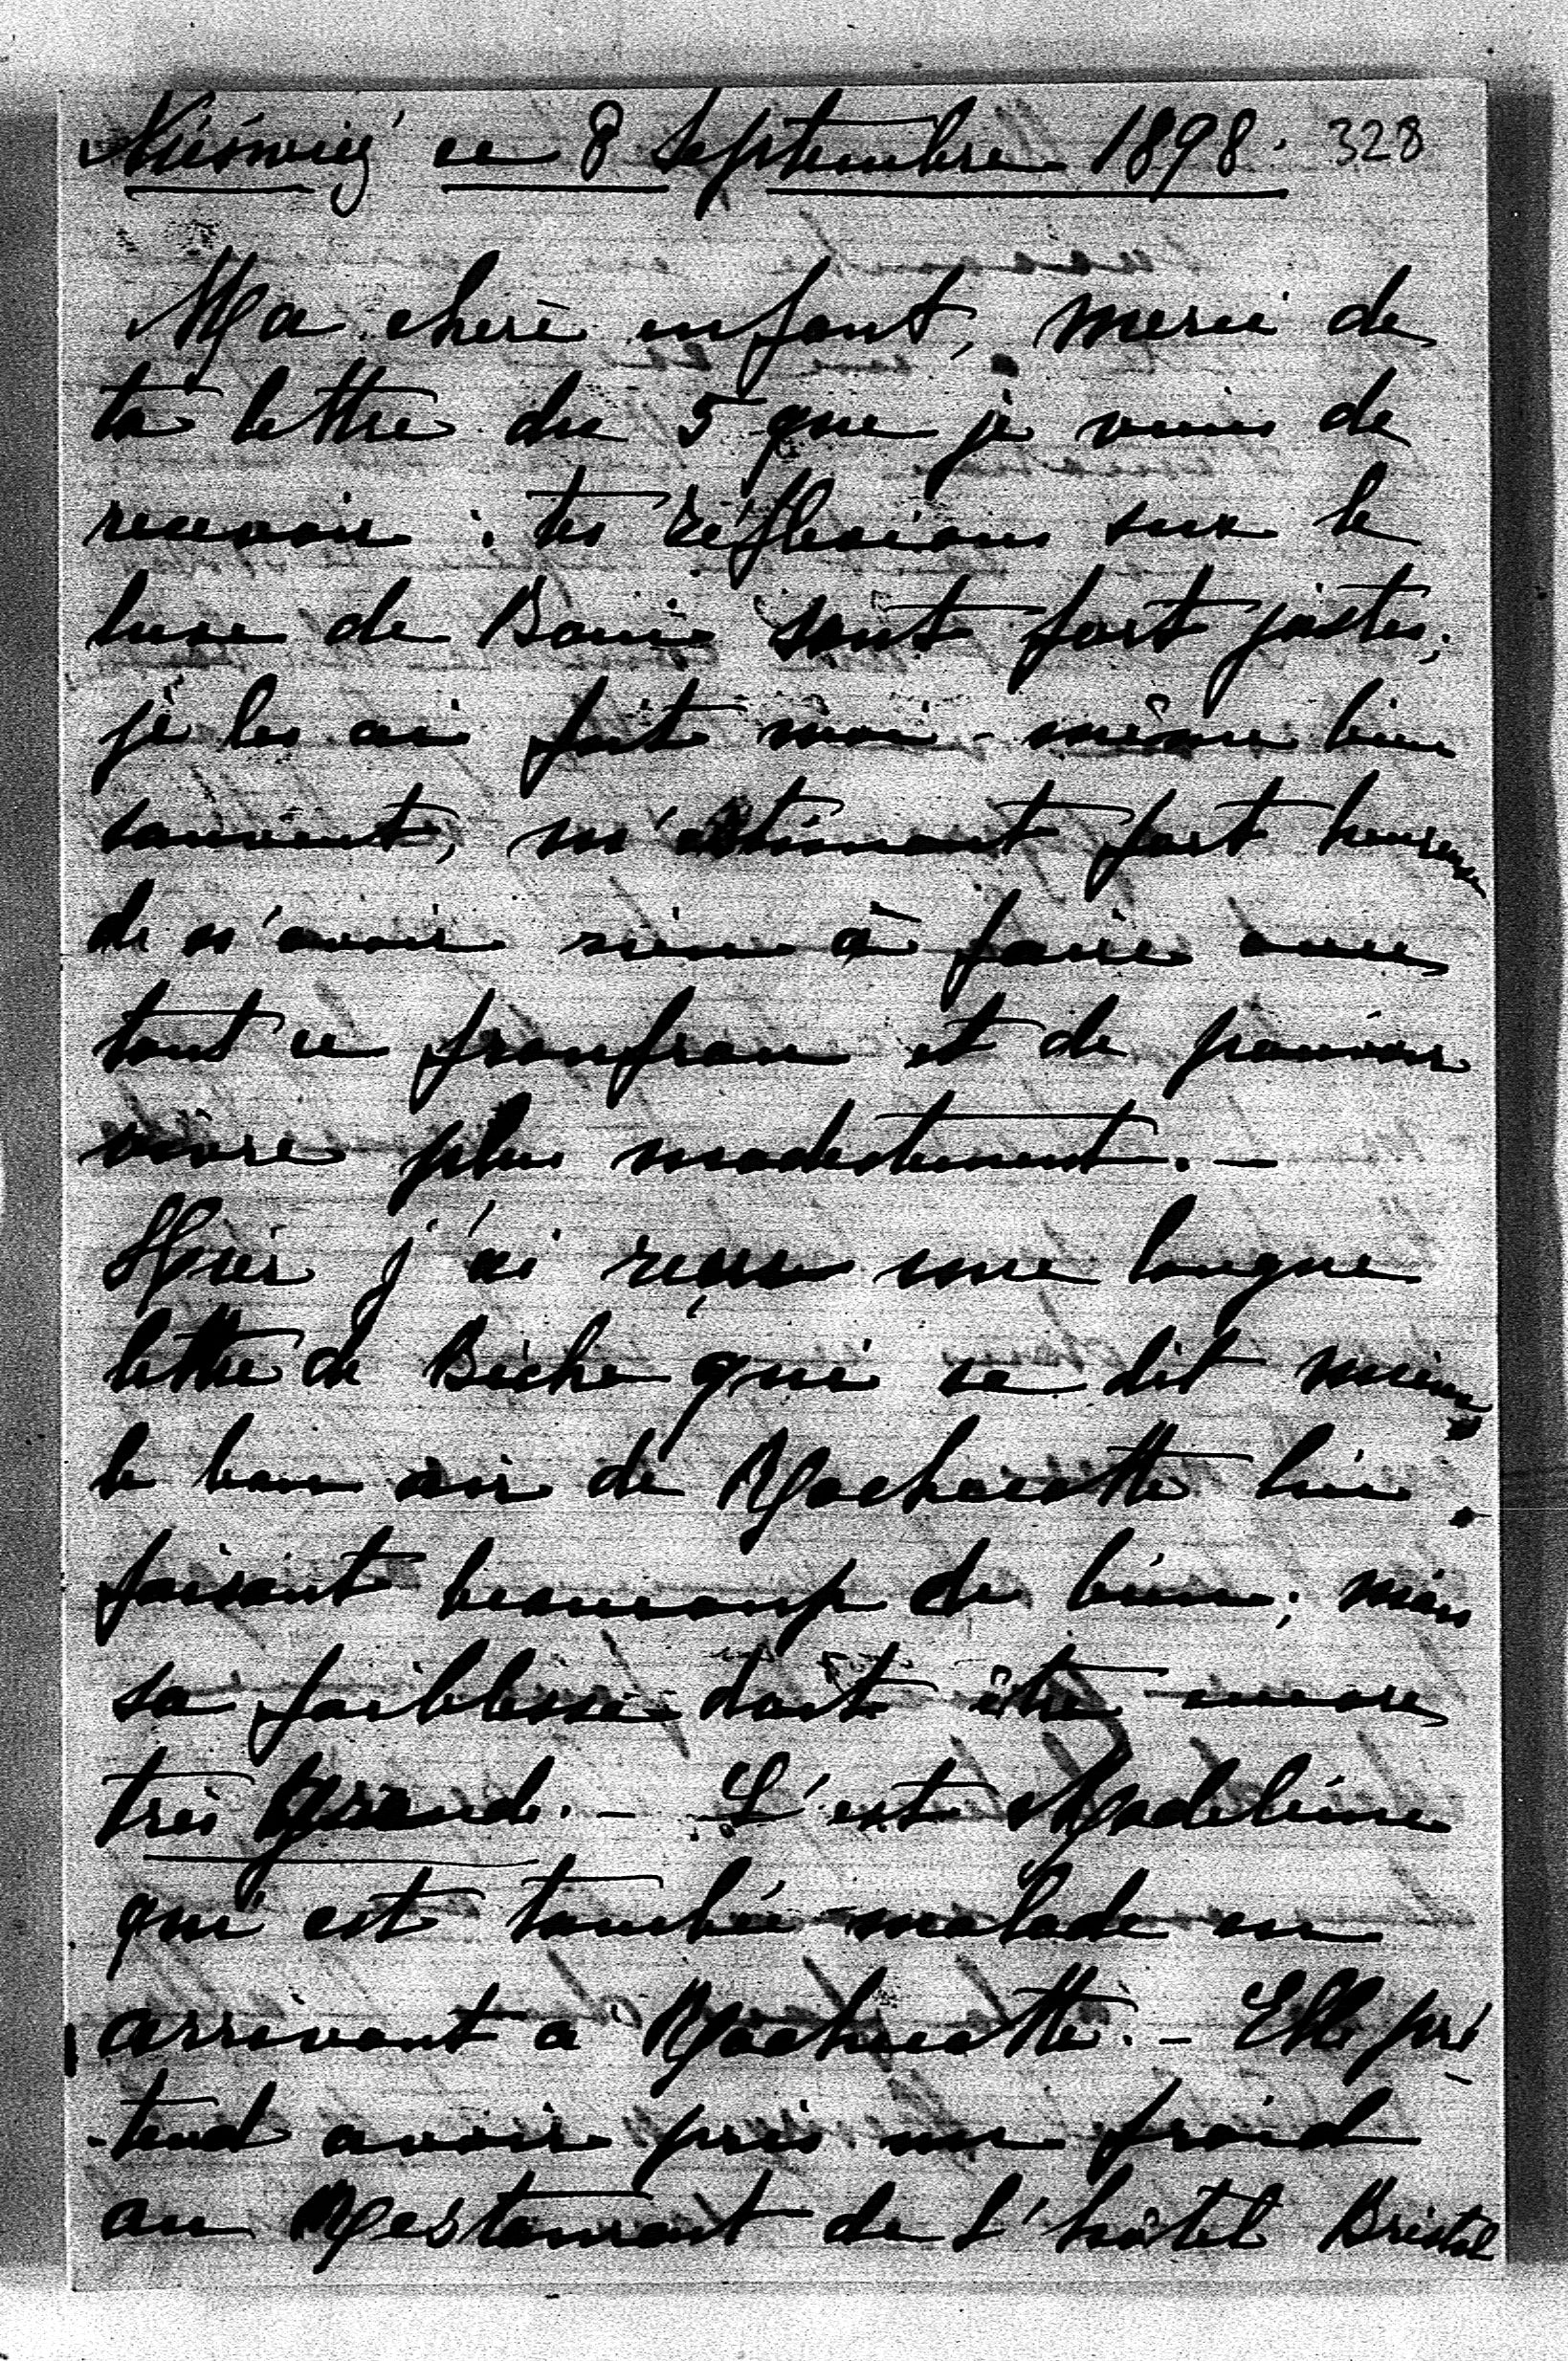 Nieśwież ce 8 Septembre 1898. 328
Ma chère enfant, merci de
ta lettre du 5 que je viens de
recevoir : tes réflexions sur le
luxe de Boni sont fort justes;
je les ai fait moi-même bien
souvent, m'estimant fort heureuse
de n'avoir rien à faire avec
tout ce froufrou et de pouvoir
vivre plus modestement. —
Hier j'ai reçu une longue
lettre de Biche qui se dit mieux,
le bon air de Rochecotte lui
faisant beaucoup de bien; mais
sa faiblesse doit être encore
très grande. — C'est Madeleine
qui est tombée malade en
arrivant à Rochecotte. — Elle pré-
-tend avoir pris un froid
au Restaurant de l'hôtel Bristol